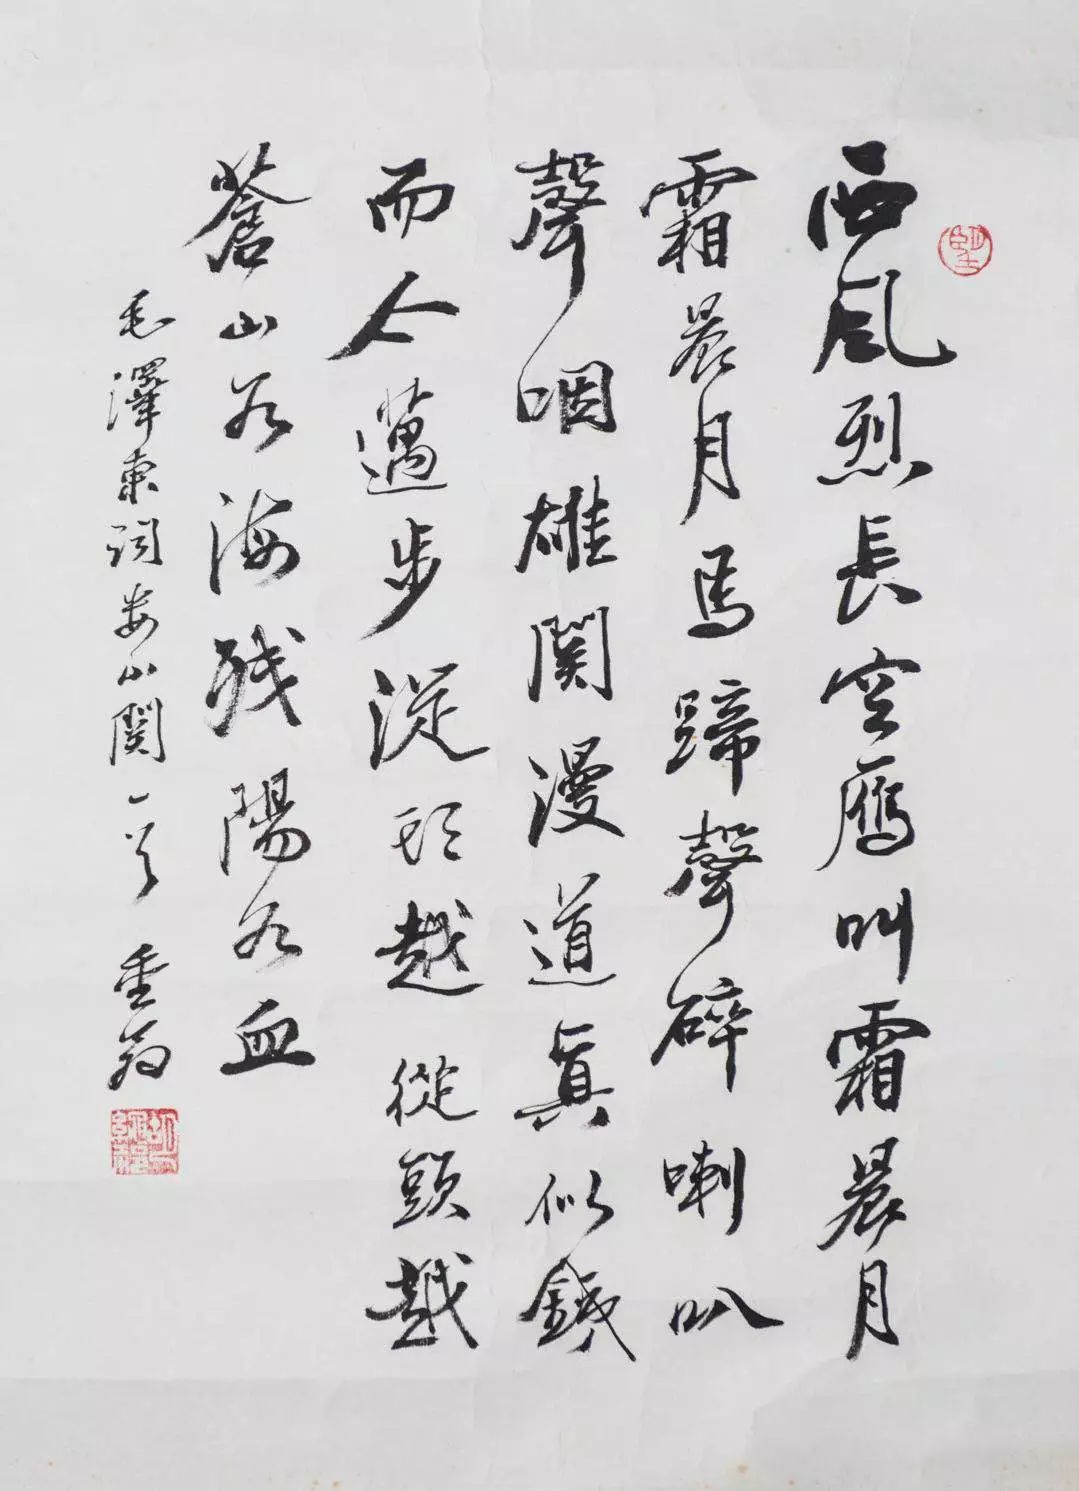 西風烈長空鷹叫霜晨月
霜晨月馬蹄聲碎喇叭
聲咽雄關漫道真似鐵
而今邁步從頭越從頭越
蒼山如海残陽如血
毛澤東詞婁山關一首